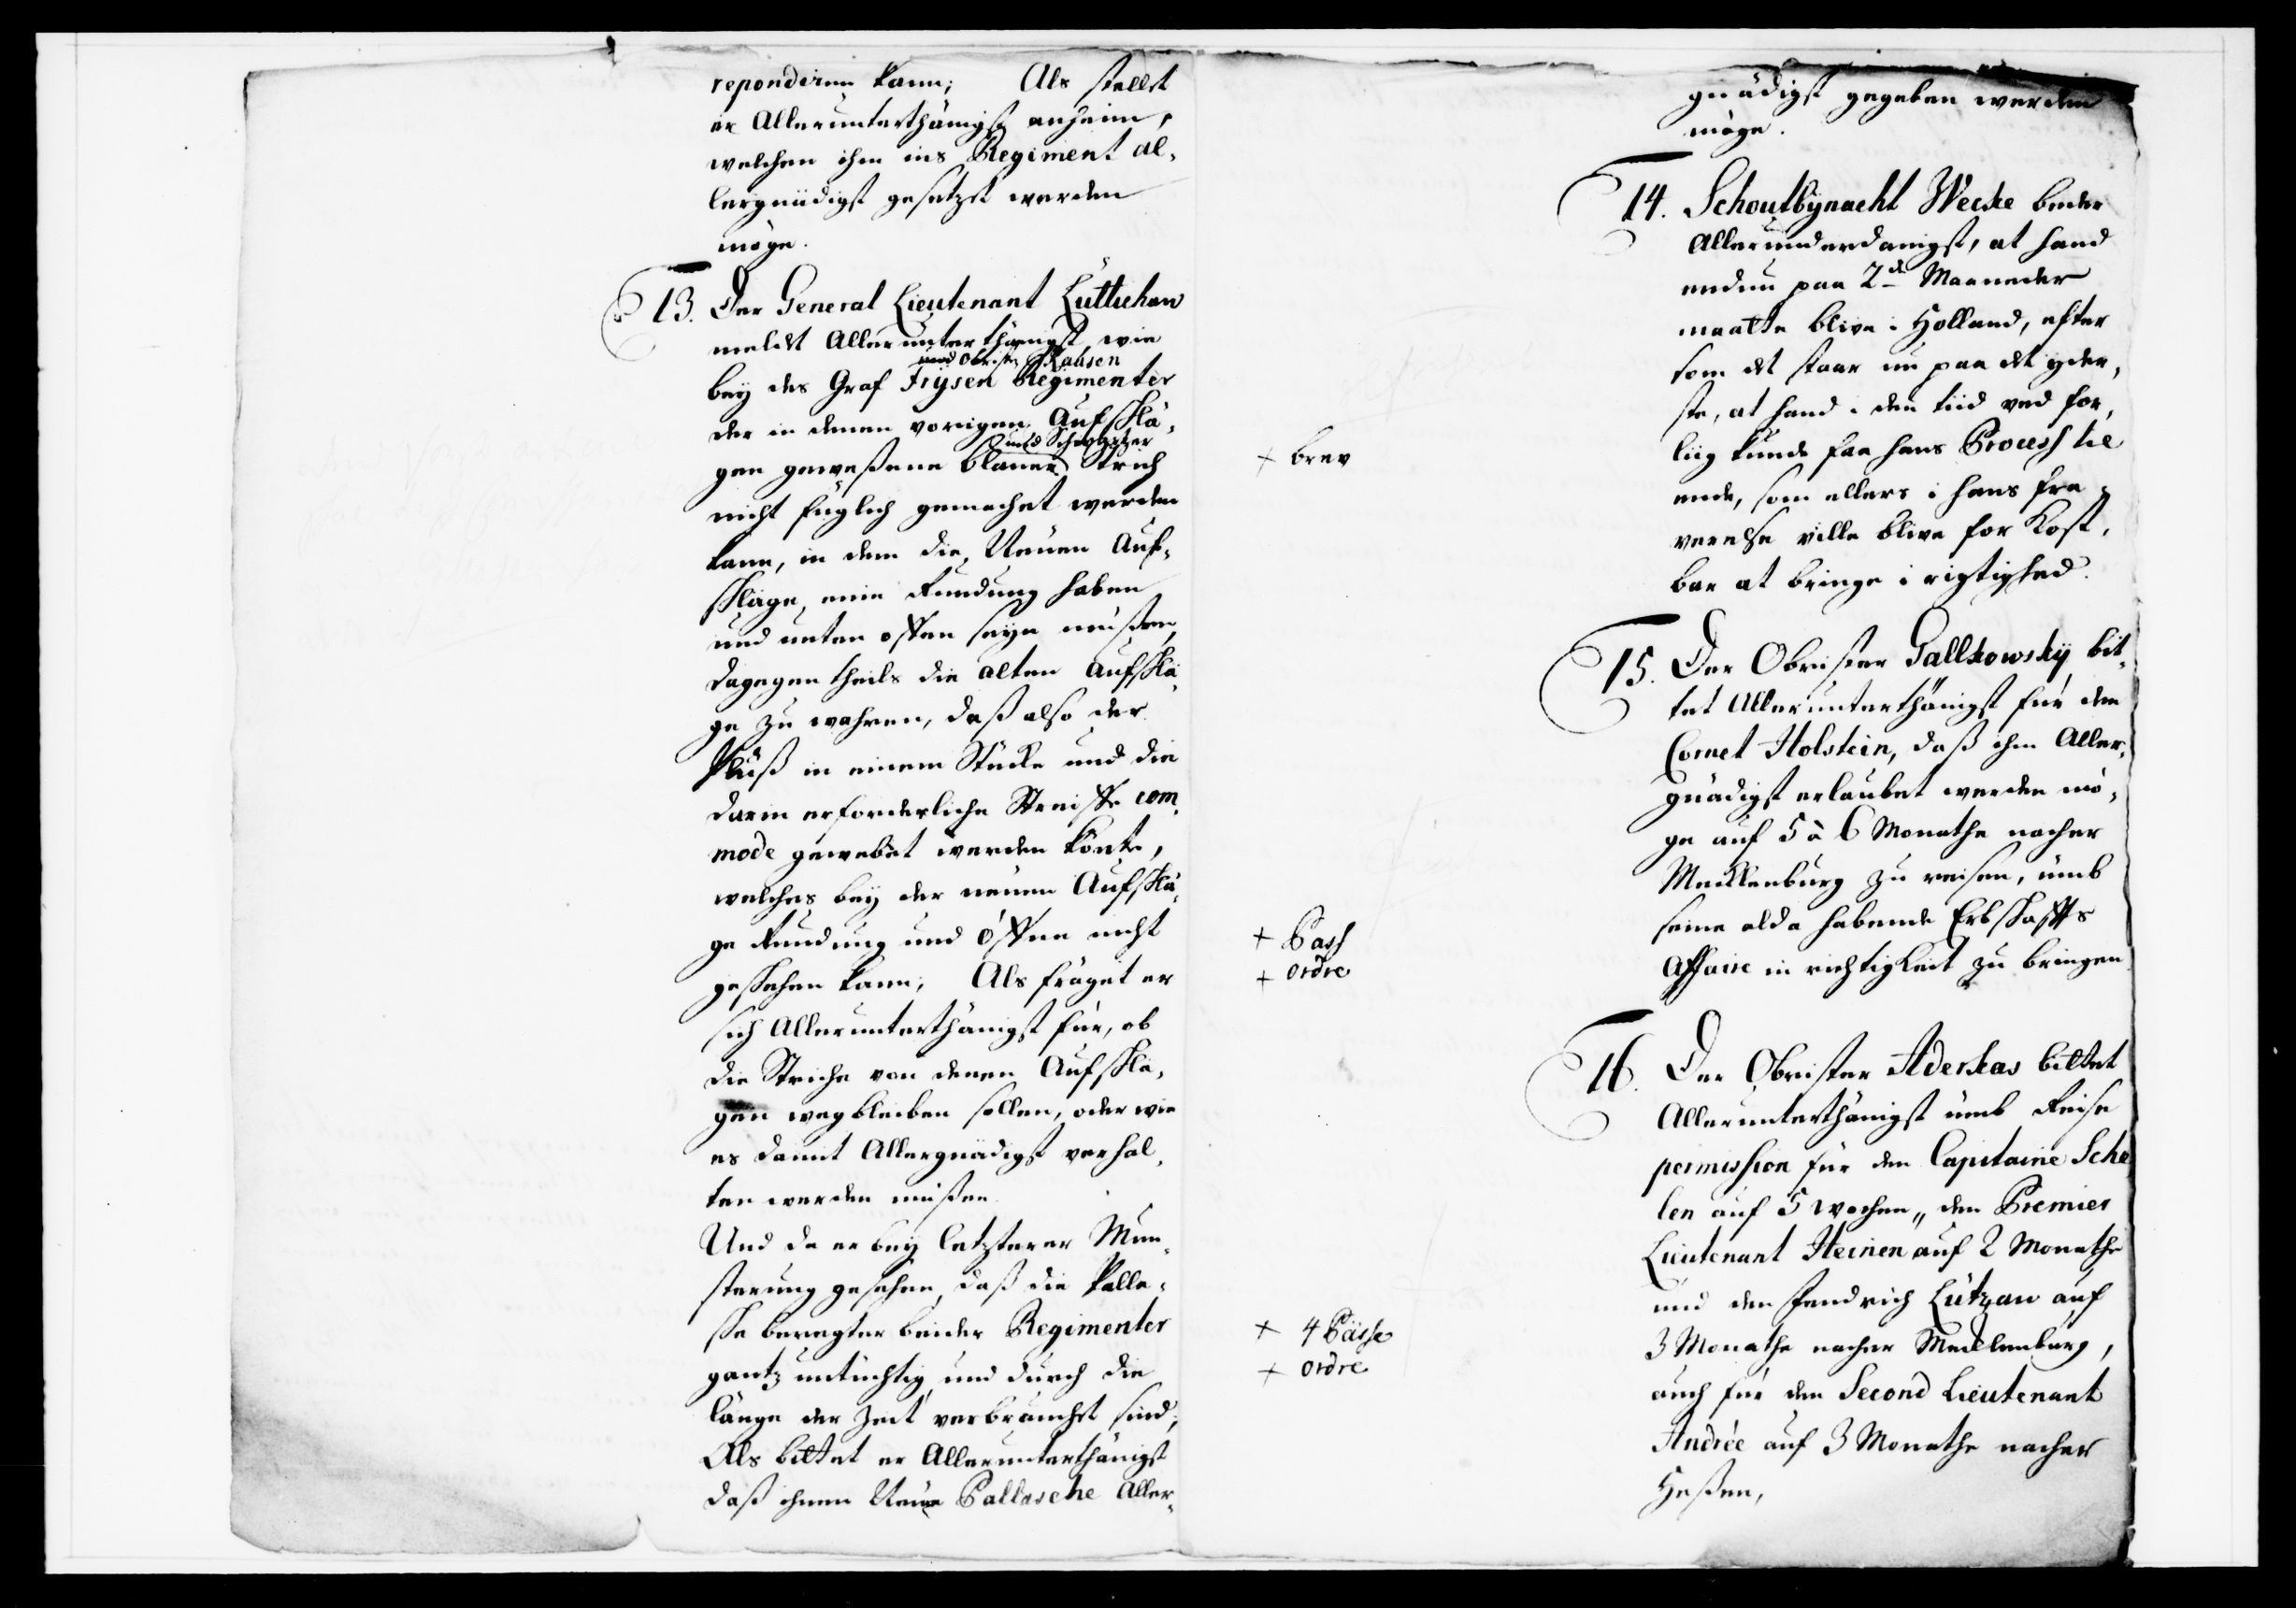 repondiren kann; Als stellet
er Allerunterthänigst anheim,
welchen ihm ins Regiment al¬
lergnädigst gesetzet werden
möge.
13. Der General Lieutenant Lüttichau
meldet Allerunterthänigst, wie
und Obrist Rabsen
bey des Graf Frysen Regimenter
der in denen vorigen Aufschlä¬
und Schwartzer
gen geweßene blauer Strich
nicht füglich gemachet werden
kann, in dem die Neüen Auf¬
schläge, eine Rundung haben
und unten offen seyn müßen,
dagegen theils die alten Aufschlä¬
ge zu wahren, daß also der
Plüß in einem Stücke und die
darin erforderliche Streiffe com¬
mode gewebet werden könte,
welches bey der neüen Aufschlä¬
ge Rundung und öffne nicht
geschehen kann; Als fräget er
sich Allerunterthänigst für, ob
die Striche von denen Aufschlä¬
gen wegbleiben sollen, oder wie
es damit Allergnädigst verhal¬
ten werden müßen.
Und da er bey letzterer Mun¬
sterung gesehen, daß die Palla¬
sche beregter beider Regimenter
gantz untüchtig und durch die
länge der Zeit verbrauchet sind;
Als bittet er Allerunterthänigst
daß ihnen Neüe Pallasche Aller¬
gnädigst gegeben werden
möge.
14. Schoutbynacht Wecke beder
Allerunderdanigst, at hand
endnu paa 2de Maaneder
maatte blive i Holland, efter
som det staar nu paa det yder¬
ste, at hand i den tiid ved for¬
liig kunde faa hans Process til
ende, som ellers i hans fra¬
værelse ville blive for Kost¬
bar at bringe i rigtighed.
+ brev
15. Der Obrister Gallkowsky bit¬
tet Allerunterthänigst für den
Cornet Holstein, daß ihm Aller¬
gnädigst erlaubet werden mö¬
ge auf 5 à 6 Monathe nacher
Mecklenburg zu reisen, umb
seine alda habende Erbschaffts
Affaire in richtigkeit zu bringen.
+ Pass
+ ordre
16. Der Obrister Aderkas bittet
Allerunterthänigst umb Reise
permission für den Capitaine Sche
len auf 5 wochen,, den Premier
Lieutenant Heinen auf 2 Monathe
und den Fendrich Lützau auf
3 Monathe nacher Mecklenburg,
auch für den Second Lieutenant
Andrée auf 3 Monathe nacher
Heßen,
+ 4 Pässe
+ ordre